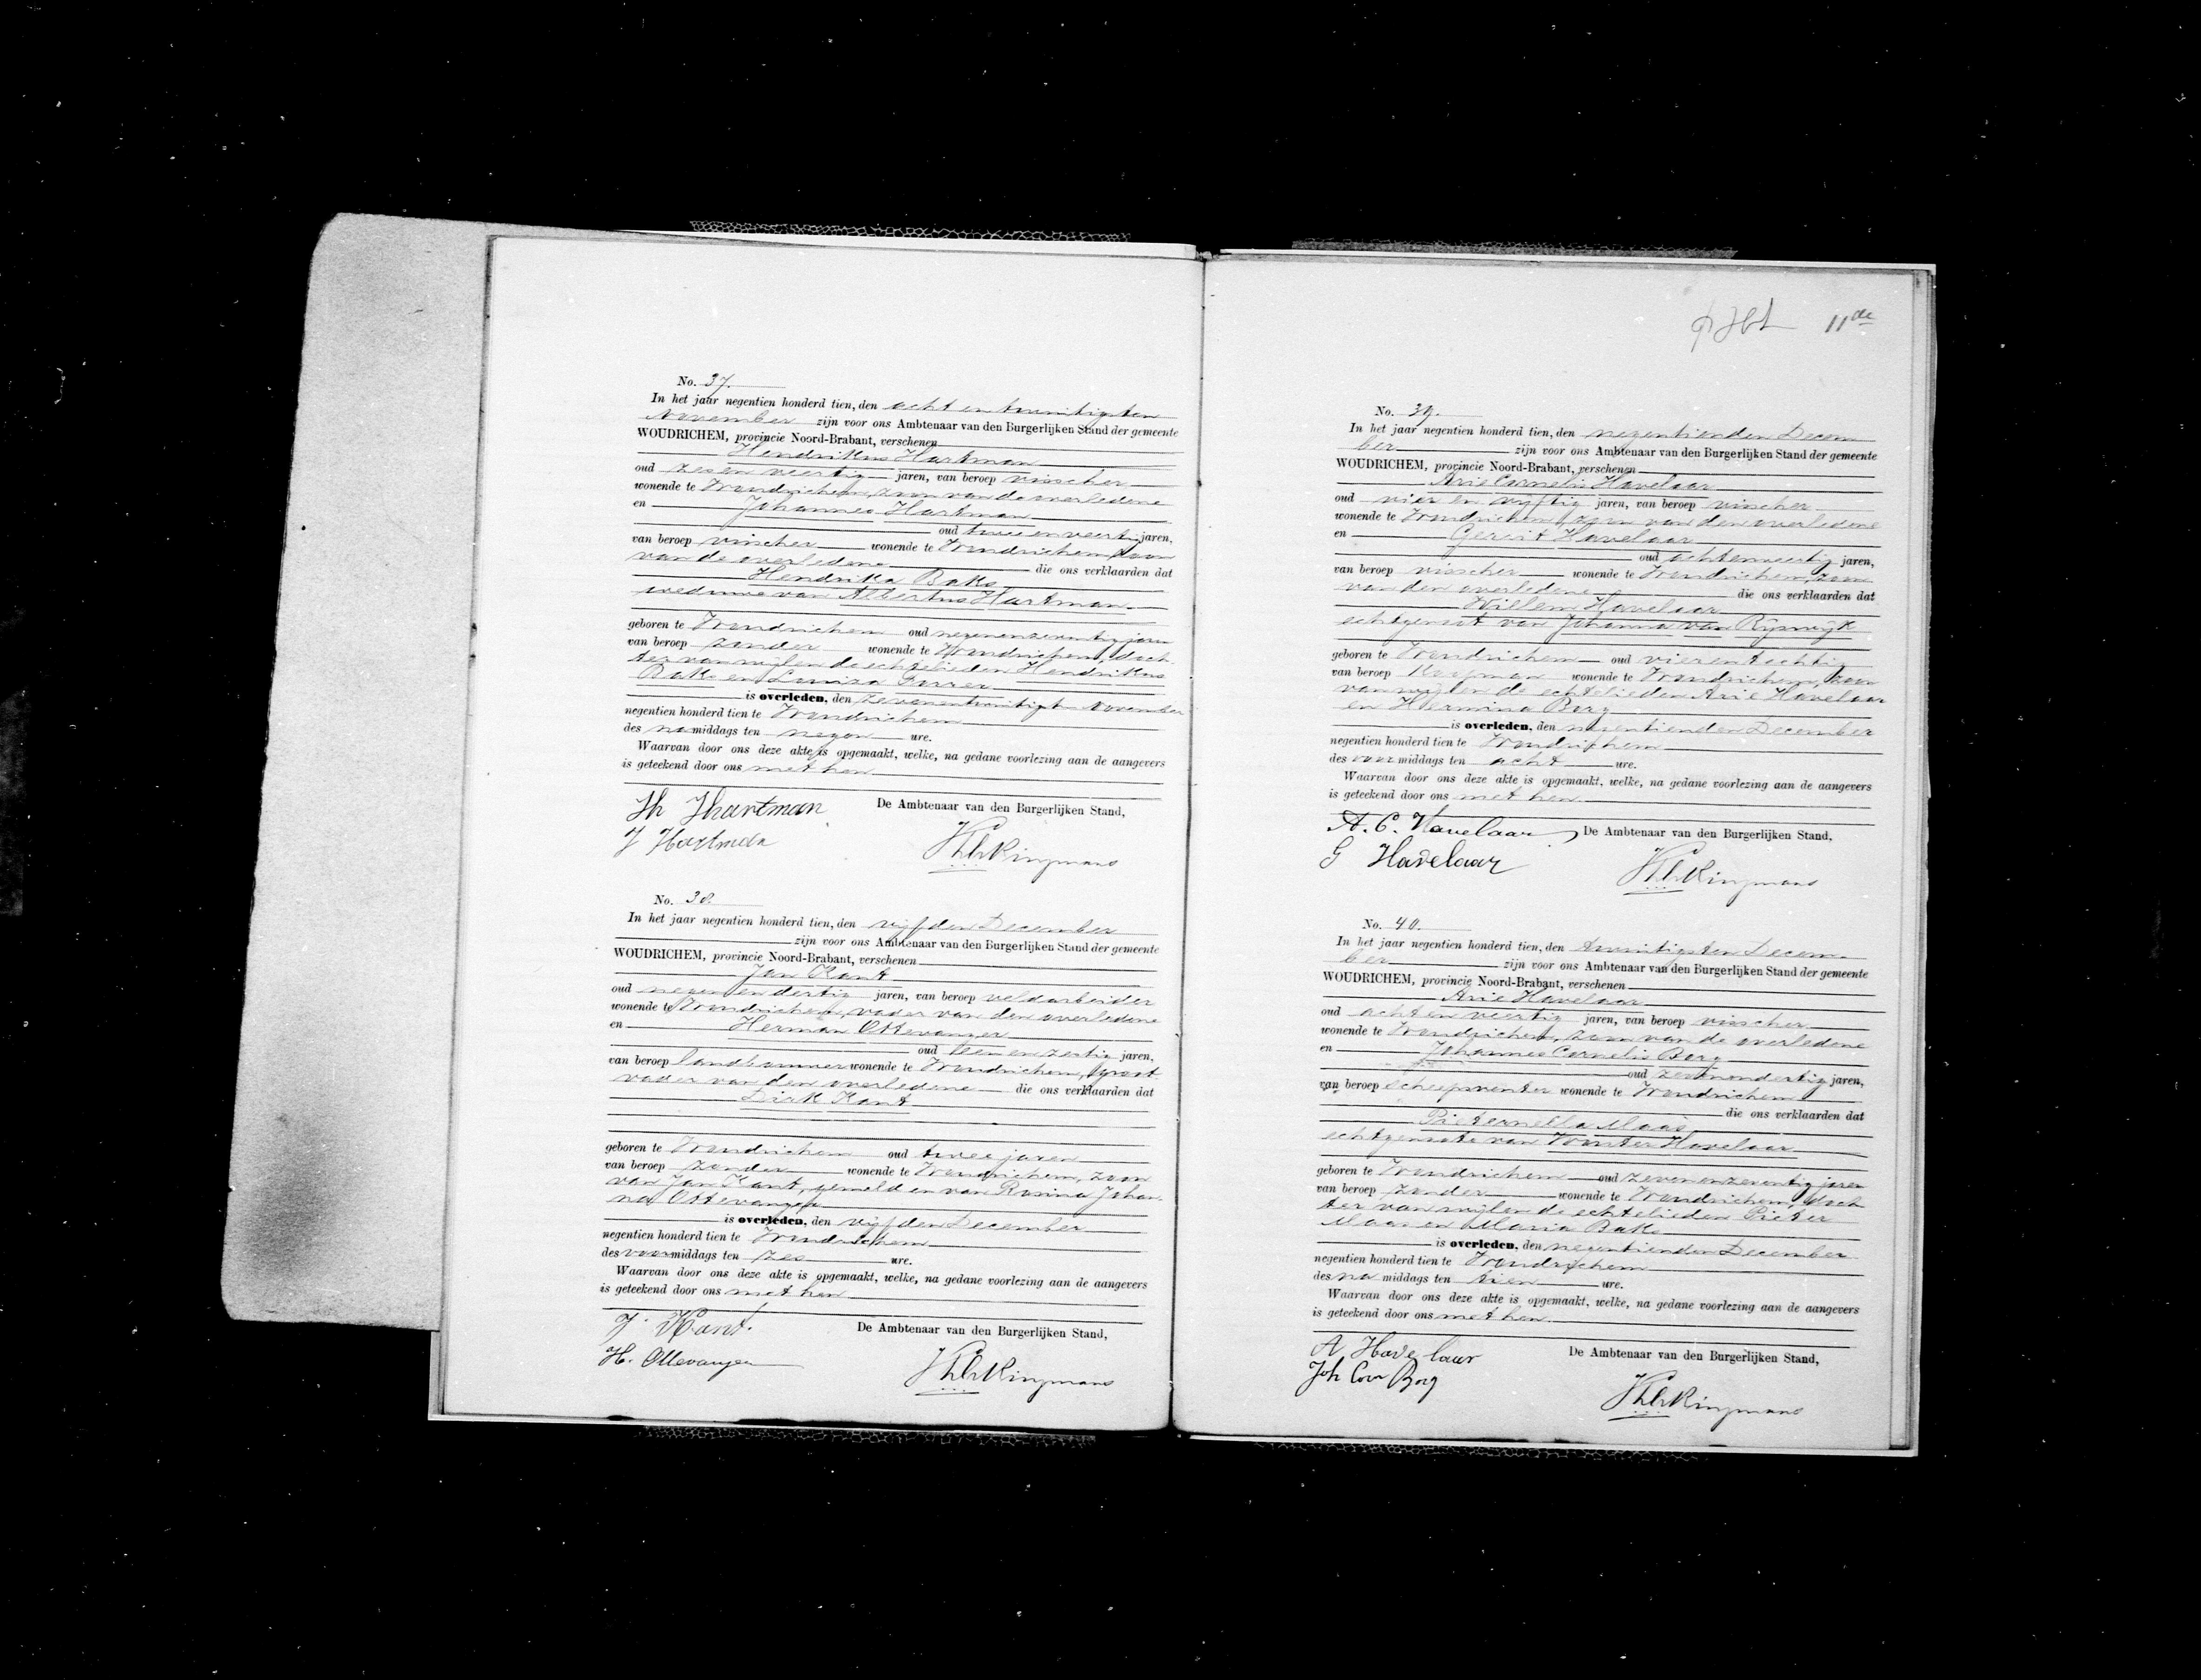 No. 37.
In het jaar negentien honderd tien, den acht en twintigsten
November zijn voor ons Ambtenaar van den Burgerlijken Stand der gemeente
WOUDRICHEM, provincie Noord-Brabant, verschenen
Hendrikus Hartman
oud zes en veertig jaren, van beroep visscher
wonende te Woudrichem, zoon van de overledene
en Johannes Hartman
oud twee en veertig jaren,
van beroep visscher wonende te Woudrichem, zoon
van de overledene die ons verklaarden dat
Hendrika Baks
weduwe van Albertus Hartman
geboren te Woudrichem oud negenenzeventig jaren
van beroep zonder wonende te Woudrichem, doch
ter van wijlen de echtelieden Hendrikus
Baks en Louiza
is overleden, den zevenentwintigsten November
negentien honderd tien te Woudrichem
des namiddags ten negen ure.
Waarvan door ons deze akte is opgemaakt, welke, na gedane voorlezing aan de aangevers
is geteekend door ons met hen
Hartman De Ambtenaar van den Burgerlijken Stand,
J Hartman
No. 38.
In het jaar negentien honderd tien, den vijfden December
zijn voor ons Ambtenaar van den Burgerlijken Stand der gemeente
WOUDRICHEM, provincie Noord-Brabant, verschenen
Jan Kant
oud negen en dertig jaren, van beroep veldarbeider
wonende te Woudrichem, vader van den overledene
en Herman Ottevanger
oud een en zestig jaren,
van beroep landbouwer wonende te Woudrichem, groot
vader van den overledene die ons verklaarden dat
Dirk Kant
geboren te Woudrichem oud twee jaren
van beroep zonder wonende te Woudrichem, zoon
van Jan Kant, gemeld en van Rosina Johan-
na Ottevanger
is overleden, den vijfden December
negentien honderd tien te Woudrichem
des voormiddags ten zes ure.
Waarvan door ons deze akte is opgemaakt, welke, na gedane voorlezing aan de aangevers
is geteekend door ons met hen
J. Kant. De Ambtenaar van den Burgerlijken Stand,
H. Ottevanger
11de
No. 39.
In het jaar negentien honderd tien, den negentienden Decem
ber zijn voor ons Ambtenaar van den Burgerlijken Stand der gemeente
WOUDRICHEM, provincie Noord-Brabant, verschenen
Arie Cornelis Havelaar
oud vier en vijftig jaren, van beroep visscher
wonende te Woudrichem, zoon van den overledene
en Gerrit Havelaar
oud achtenveertig jaren,
van beroep visscher wonende te Woudrichem, zoon
van den overledene die ons verklaarden dat
Willem Havelaar
echtgenoot van Johanna van Rijswijk
geboren te Woudrichem oud vierentachtig
van beroep Koopman wonende te Woudrichem, zoon
van wijlen de echtelieden Arie Havelaar
en Hermina Borg
is overleden, den negentienden December
negentien honderd tien te Woudrichem
des voormiddags ten acht ure.
Waarvan door ons deze akte is opgemaakt, welke, na gedane voorlezing aan de aangevers
is geteekend door ons met hen
A. C. Havelaar De Ambtenaar van den Burgerlijken Stand,
G Havelaar
No. 40.
In het jaar negentien honderd tien, den twintigsten Decem-
ber zijn voor ons Ambtenaar van den Burgerlijken Stand der gemeente
WOUDRICHEM, provincie Noord-Brabant, verschenen
Arie Havelaar
oud acht en veertig jaren, van beroep visscher
wonende te Woudrichem, zoon van de overledene
en Johannes Cornelis Borg
oud zevenendertig jaren,
van beroep scheepsventer wonende te Woudrichem
die ons verklaarden dat
Pieternella Maas
echtgenoote van Wouter Havelaar
geboren te Woudrichem oud zevenenzeventig jaren
van beroep zonder wonende te Woudrichem, doch
ter van wijlen de echtelieden Pieter
Maas en Maria Baks
is overleden, den negentienden December
negentien honderd tien te Woudrichem
des namiddags ten tien ure.
Waarvan door ons deze akte is opgemaakt, welke, na gedane voorlezing aan de aangevers
is geteekend door ons met hen
A. Havelaar De Ambtenaar van den Burgerlijken Stand,
Joh Cor Borg